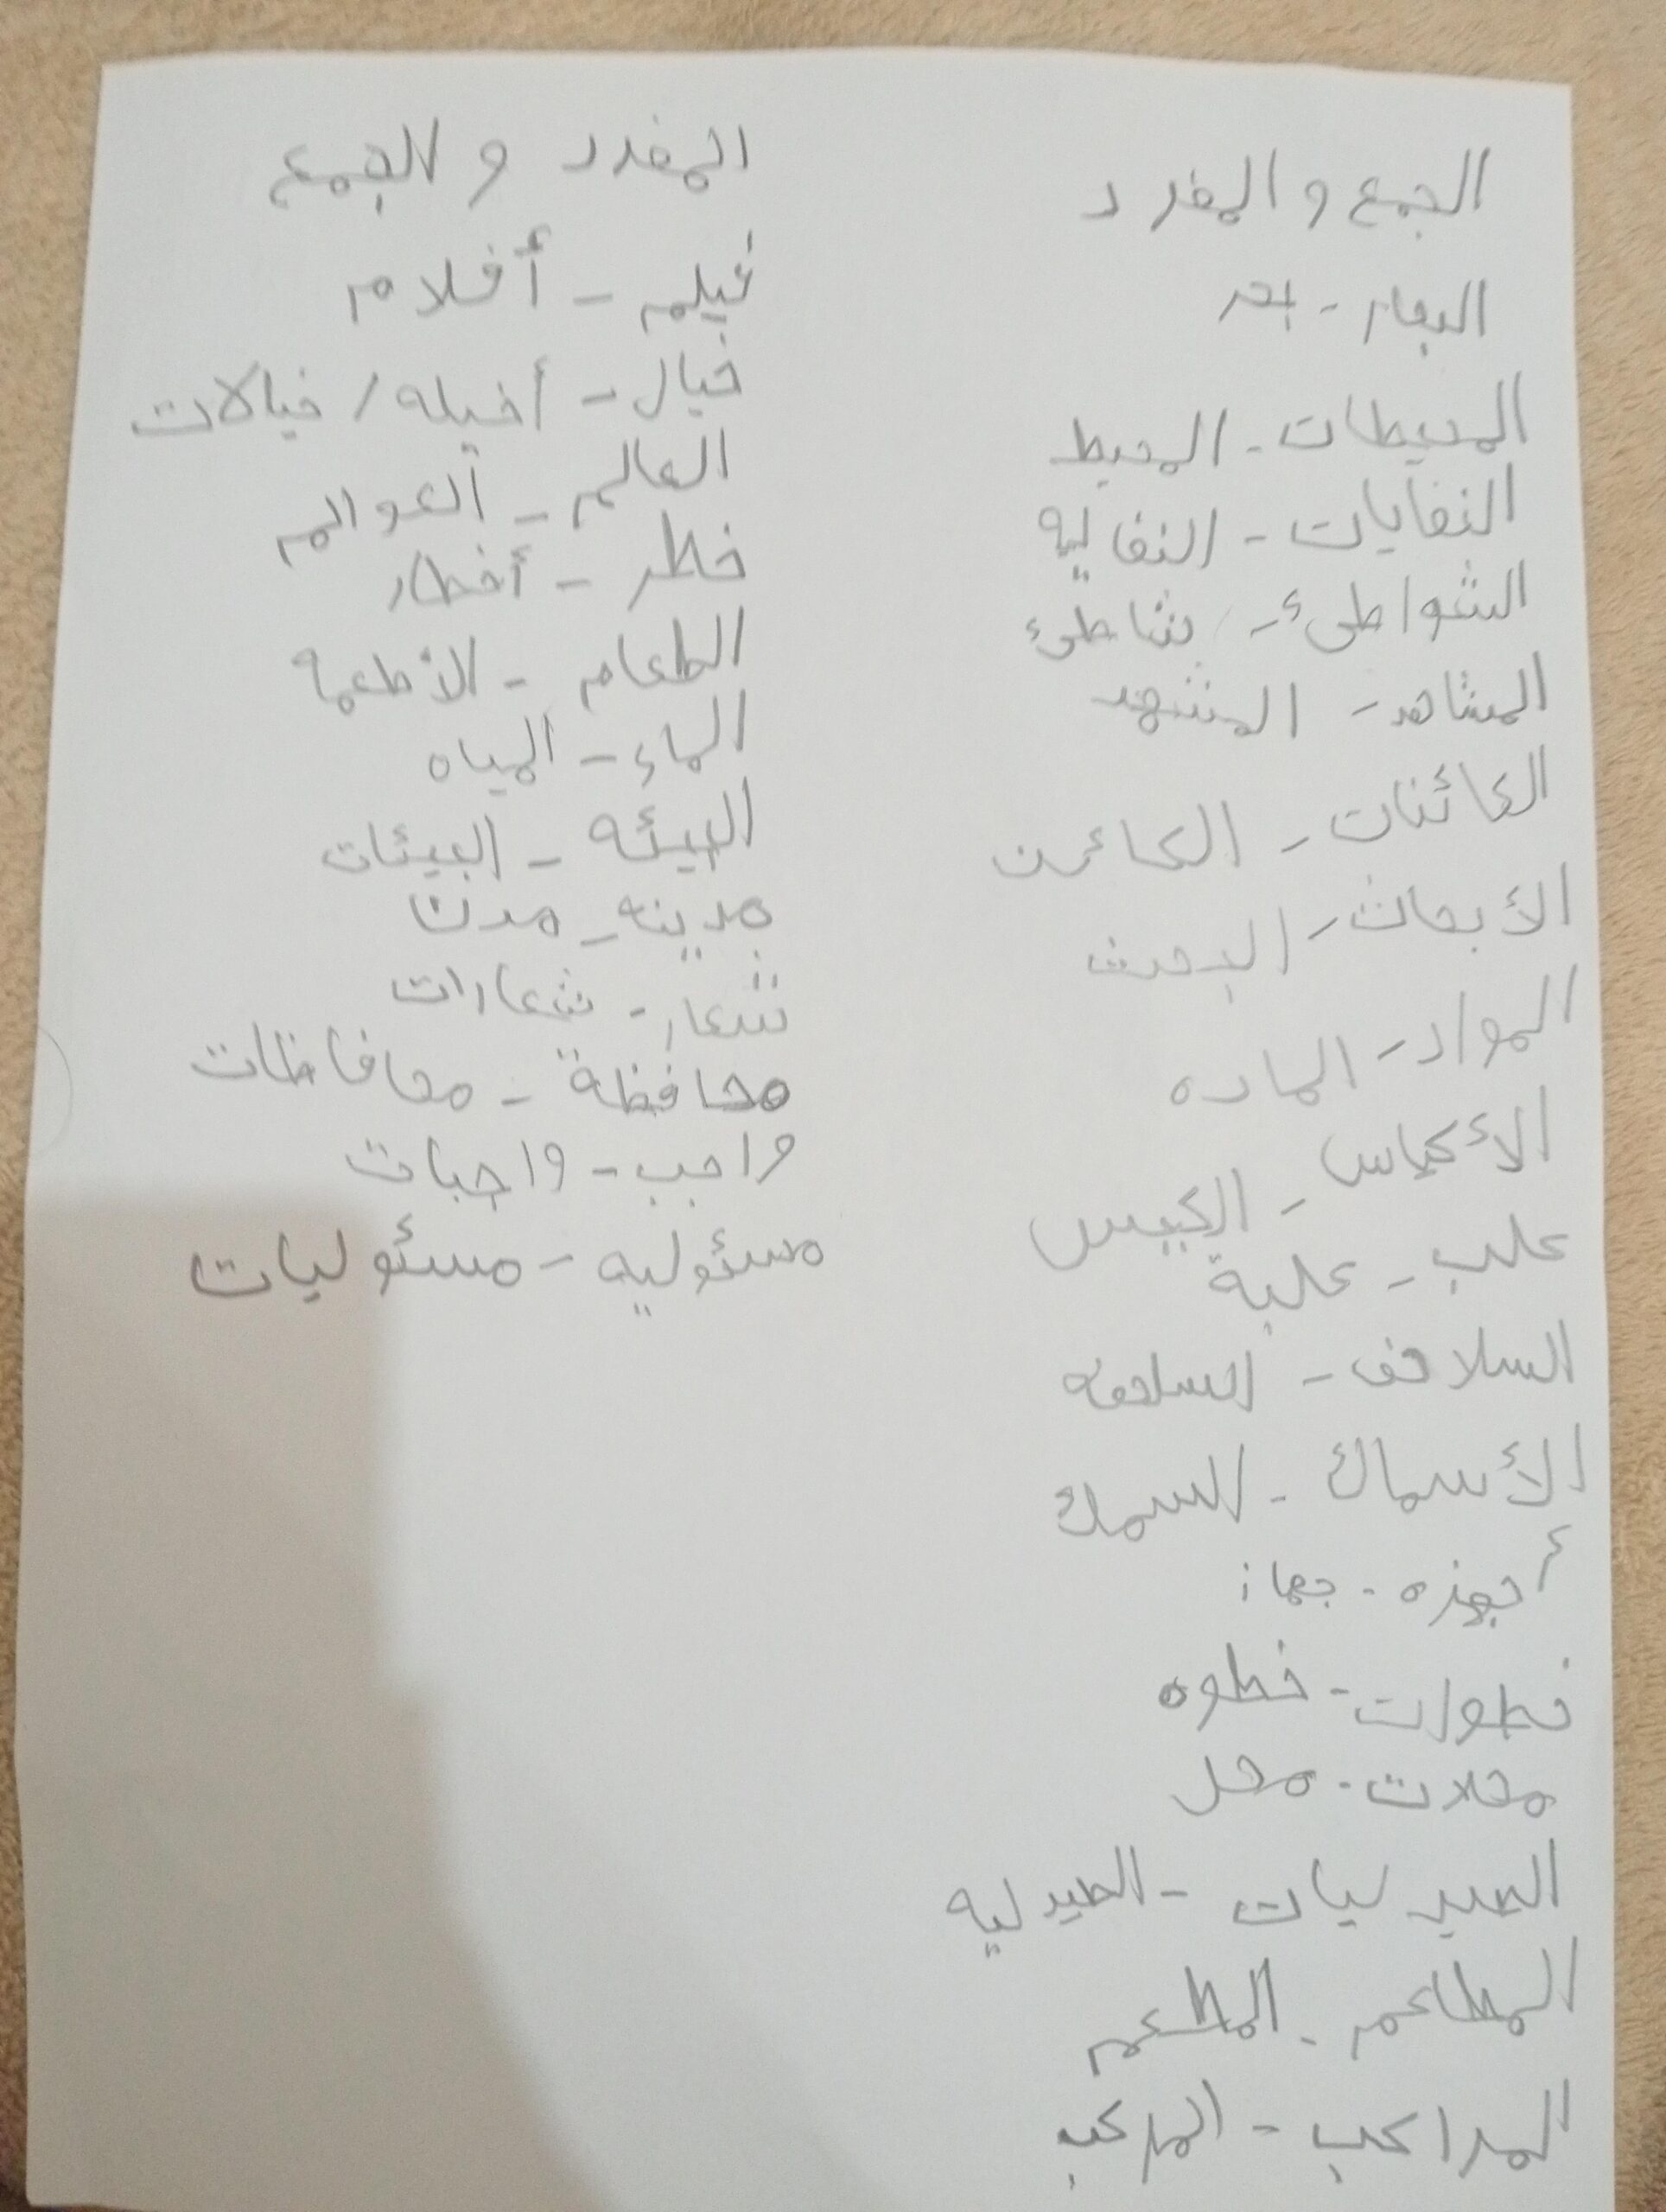 الجمع و المفرد
البحار - بحر
المحيطات - المحيط
النفايات - النفاية
الشواطئ - شاطئ
المشاهد - المشهد
الكائنات - الكائن
الأبحاث - البحث
المواد - الماده
الأكياس - الكيس
علب - علبة
السلاحف - السلحفه
الأسماك - السمك
أجهزه - جهاز
خطوات - خطوه
محلات - محل
الصيدليات - الصيدليه
المطاعم - المطعم
المراكب - المركب
المفرد و الجمع
فيلم - أفلام
خيال - أخيله / خيالات
العالم - العوالم
خطر - أخطار
الطعام - الأطعمه
الماء - المياه
البيئه - البيئات
مدينه - مدن
شعار - شعارات
محافظة - محافاظات
واجب - واجبات
مسئوليه - مسئوليات